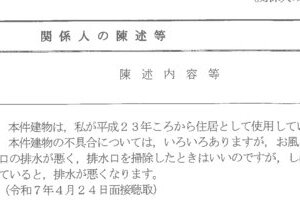 関係人の陳述等
陳述内容等
本件建物は，私が平成２３年ころから住居として使用してい
本件建物の不具合については，いろいろありますが，お風
ロの排水が悪く，排水口を掃除したときはいいのですが，し
ていると，排水が悪くなります。
（令和７年４月２４日面接聴取）